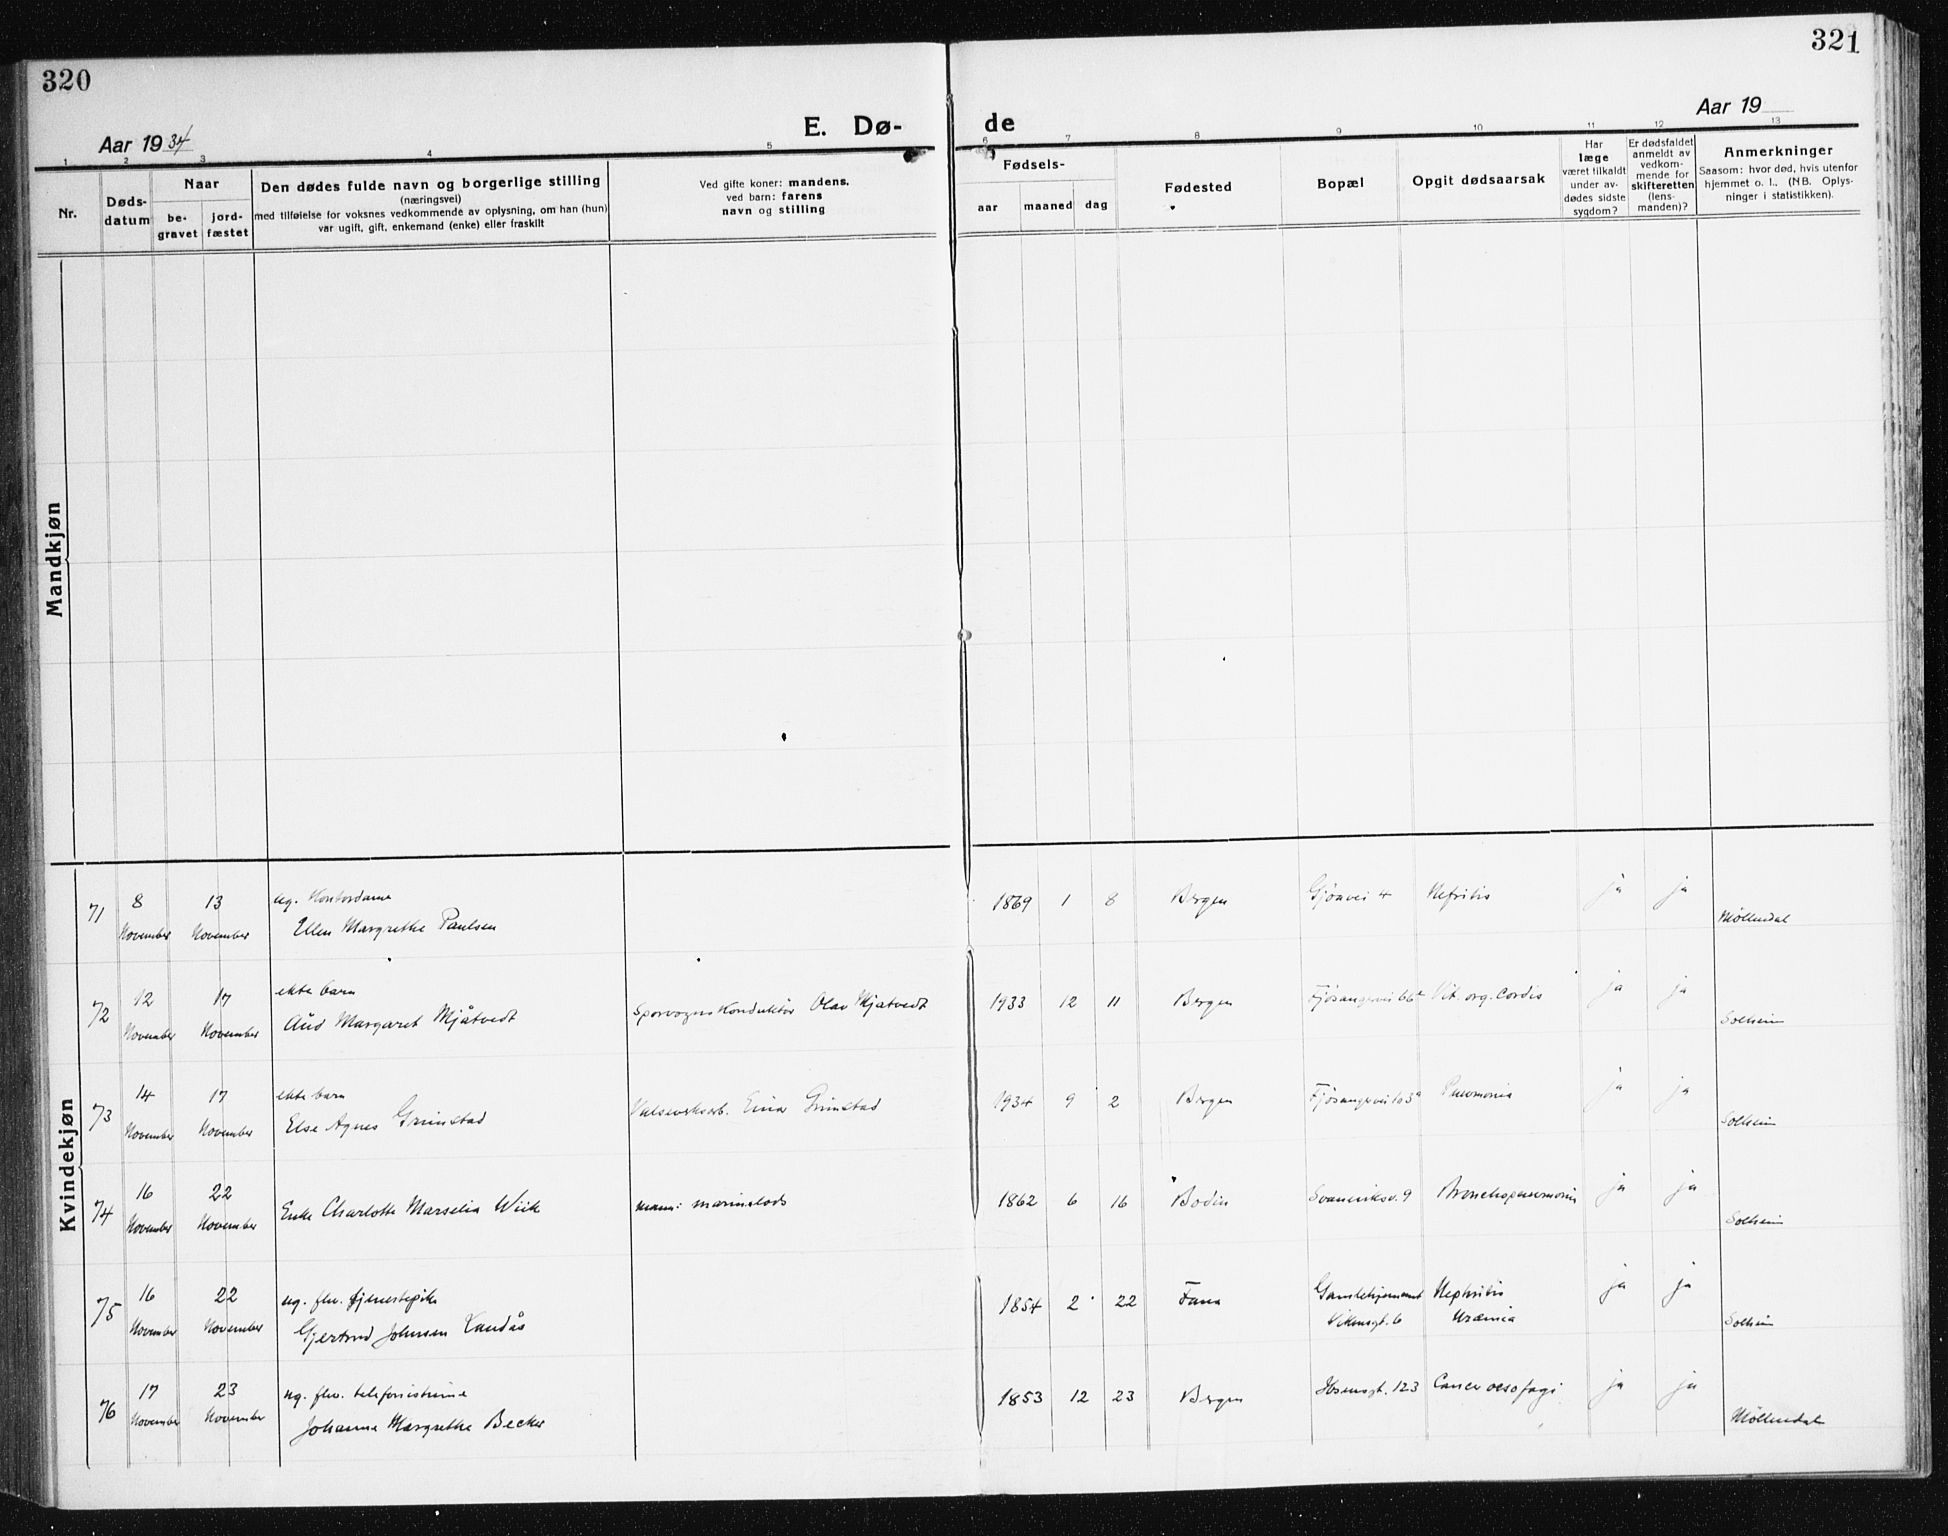 320
321
Aar 1934
E. Dø-
de
Aar 19
1 2 3 4 5 6 7 8 9 10 11 12 13
Nr.
Døds-
datum
Naar
be-
gravet
jord-
fæstet
Den dødes fulde navn og borgerlige stilling
(næringsvei)
med tilføielse for voksnes vedkommende av oplysning, om han (hun)
var ugift, gift, enkemand (enke) eller fraskilt
Ved gifte koner: mandens,
ved barn: farens
navn og stilling
Fødsels-
aar maaned dag
Fødested
Bopæl
Opgit dødsaarsak
Har
læge
været tilkaldt
under av-
dødes sidste
sygdom?
Er dødsfaldet
anmeldt av
vedkom-
mende for
skifteretten
(lens-
manden)?
Anmerkninger
Saasom: hvor død, hvis utenfor
hjemmet o. l., (NB. Oplys-
ninger i statistikken).
Mandkjøn
Kvindekjøn
71 8 November 13 November ug. Kontordame
Ellen Margrethe Paulsen
1869 1 8 Bergen Gjönvei 4 Nefritis ja ja Möllendal
72 12 November 17 November ekte barn
Aud Margaret Mjåtvedt
Sporvognskonduktör Olav Mjåtvedt
1933 12 11 Bergen Fjösangervei 66a Vit. org. Cordis ja ja Solheim
73 14 November 17 November ekte barn
Else Agnes Grimstad
Valseverksarb. Einar Grimstad
1934 9 2 Bergen Pneumonia ja ja Solheim
74 16 November 22 November Enke Charlotte Marselia Wiik
mann: marinelods
1862 6 16 Bodin Svaneviksv. 9 Bronchopneumonia ja ja Solheim
75 16 November 22 November ug. fhv. tjenestepike
Gjertrud Johnsen Landås
1854 2 22 Fana Gamlehjemmet
Vikensgt. 6
Nephritis
Uræmia
ja ja Solheim
76 17 November 23 November ug. fhv. telefonistinne
Johanne Margrethe Becker
1853 12 23 Bergen Ibsensgt. 123 Cancer oesofagi ja ja Möllendal